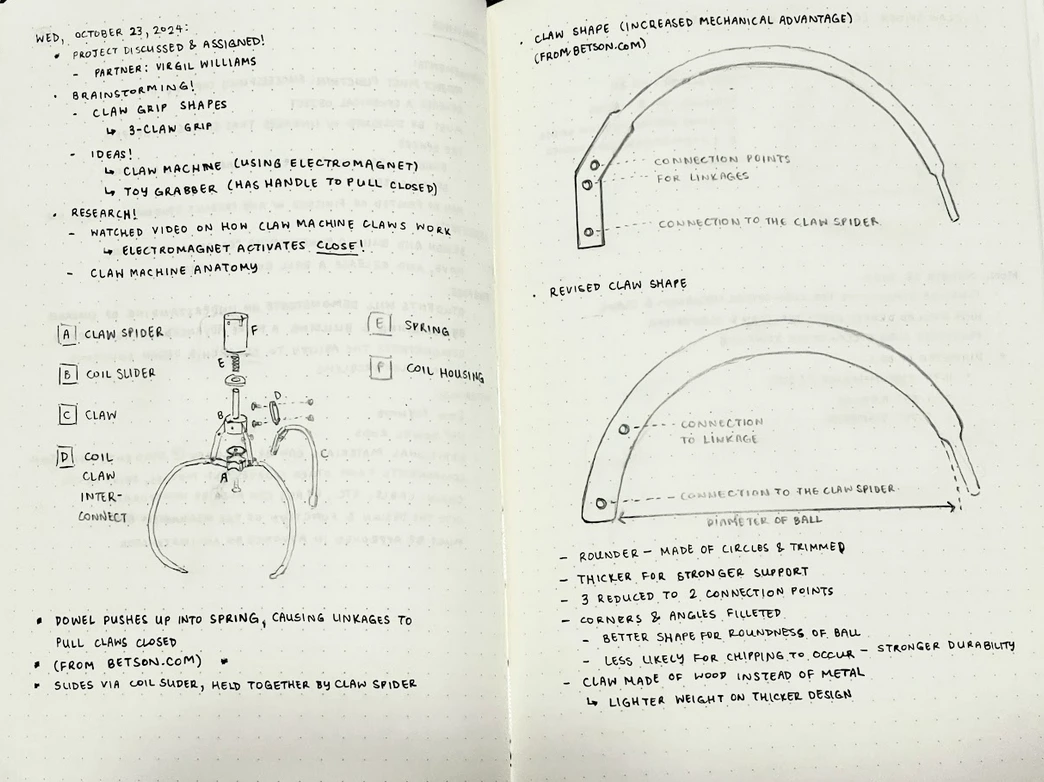 WED, OCTOBER 23, 2024:
• PROJECT DISCUSSED & ASSIGNED!
- PARTNER: VIRGIL WILLIAMS
• BRAINSTORMING!
- CLAW GRIP SHAPES
↳ 3-CLAW GRIP
- IDEAS!
↳ CLAW MACHINE (USING ELECTROMAGNET)
↳ TOY GRABBER (HAS HANDLE TO PULL CLOSED)
• RESEARCH!
- WATCHED VIDEO ON HOW CLAW MACHINE CLAWS WORK
↳ ELECTROMAGNET ACTIVATES CLOSE!
- CLAW MACHINE ANATOMY
A CLAW SPIDER
B COIL SLIDER
C CLAW
D COIL
CLAW
INTER-
CONNECT
E SPRING
F COIL HOUSING
F
E
D
B
C
A
• DOWEL PUSHES UP INTO SPRING, CAUSING LINKAGES TO
PULL CLAWS CLOSED
• (FROM BETSON.COM) •
• SLIDES VIA COIL SLIDER, HELD TOGETHER BY CLAW SPIDER
• CLAW SHAPE (INCREASED MECHANICAL ADVANTAGE)
(FROM BETSON.COM)
CONNECTION POINTS
FOR LINKAGES
CONNECTION TO THE CLAW SPIDER
• REVISED CLAW SHAPE
CONNECTION
TO LINKAGE
CONNECTION TO THE CLAW SPIDER
DIAMETER OF BALL
- ROUNDER - MADE OF CIRCLES & TRIMMED
- THICKER FOR STRONGER SUPPORT
- 3 REDUCED TO 2 CONNECTION POINTS
- CORNERS & ANGLES FILLETED
- BETTER SHAPE FOR ROUNDNESS OF BALL
- LESS LIKELY FOR CHIPPING TO OCCUR - STRONGER DURABILITY
- CLAW MADE OF WOOD INSTEAD OF METAL
↳ LIGHTER WEIGHT ON THICKER DESIGN